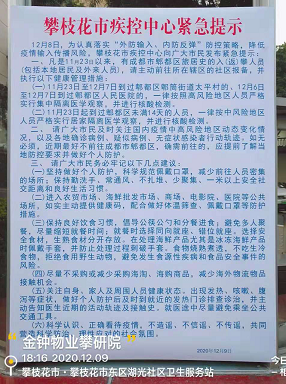 攀枝花市疾控中心紧急提示
12月8号，为认真落实“外防输入、内防反弹”防控策略，降低
疫情输入传播风险，攀枝花市疾控中心向广大市民发紧急提示：
一、凡是11月23日以来，有成都市郫都区旅居史的入(返)攀人员
(包括本地居民及外来人员)，请主动前往所在辖区的社区报备，并
执行以下健康管理措施：
(一)11月23日至12月7日到过郫都区郫筒街道太平村的、12月6日
至12月7日到过郫都区人民医院的，一律按照高风险地区人员严格
实行集中隔离医学观察，并进行核酸检测。
(二)11月23日起到过郫都区未满14天的人员，一律按中风险地
区人员严格实行居家隔离医学观察，并进行核酸检测。
二、请广大市民及时关注国内疫情中高风险地区动态变化情
况，以及各地确诊病例、疑似病例、无症状感染者行动轨迹。如无
必须，近期最好不前往成都市郫都区，确需前往的，应提前了解当
地防控要求并做好个人防护。
三、请广大市民务必牢记以下几点建议：
(一)坚持做好个人防护，科学规范佩戴口罩，减少前往人员密集
的场所；保持勤洗手，常通风、不扎堆，少聚集、一米以上安全社
交距离和良好生活习惯。
(二)进入农贸市场、海鲜批发市场、商场、电影院、医院等公共
场所，如实主动提供健康码，配合做好体温筛查，佩戴口罩等防护
措施。
(三)保持良好饮食习惯，倡导公筷公勺和分餐进食；避免多人聚
餐，尽量缩短就餐时间；就餐时选择同向就座、错位就座。选择安
全食材，生熟食材分开存放。在处理海鲜产品尤其是冰冻海鲜产品
时佩戴手套，并防止处理过程刺破手套。食物烧熟煮透，不吃生冷
食物，拒绝食用野生动物，避免发生食源性疾病和食品安全事件的
风险。
(四)尽量不采购或减少采购海淘、海购商品，减少海外物流物品
接触机会。
(五)关注自身、家人及周围人员健康状态。出现发热、咳嗽、腹
泻等症状，做好个人防护后及时到就近的发热门诊排查诊治，并主
动告知医生近期的活动轨迹及接触史，就医途中尽量避免乘坐公共
交通工具。
(六)科学认识，正确看待疫情，不造谣、不信谣、不传谣，共同
营造科学防治、理性应对的社会氛围。
2020年12月8日
金钟物业攀研院
18:16 2020.12.09
攀枝花市·攀枝花东区湖光社区卫生服务站